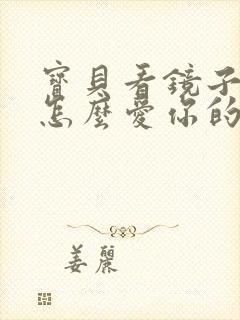 寶貝看鏡子
怎麼愛你的
姜麗